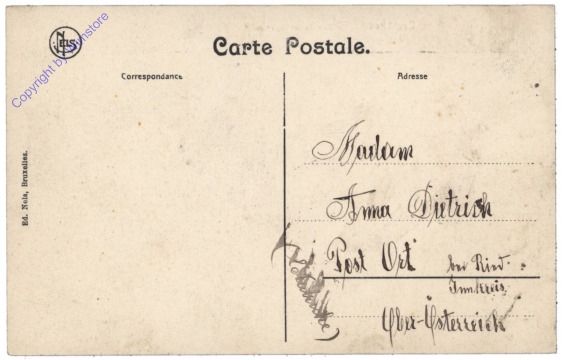 Nels
Copyright by Sunstore
Carte Postale.
Correspondance
Adresse
Ed. Nels, Bruxelles.
Madam
Anna Dietrich
Post Ort bei Ried
Innkreis
Ober-Österreich